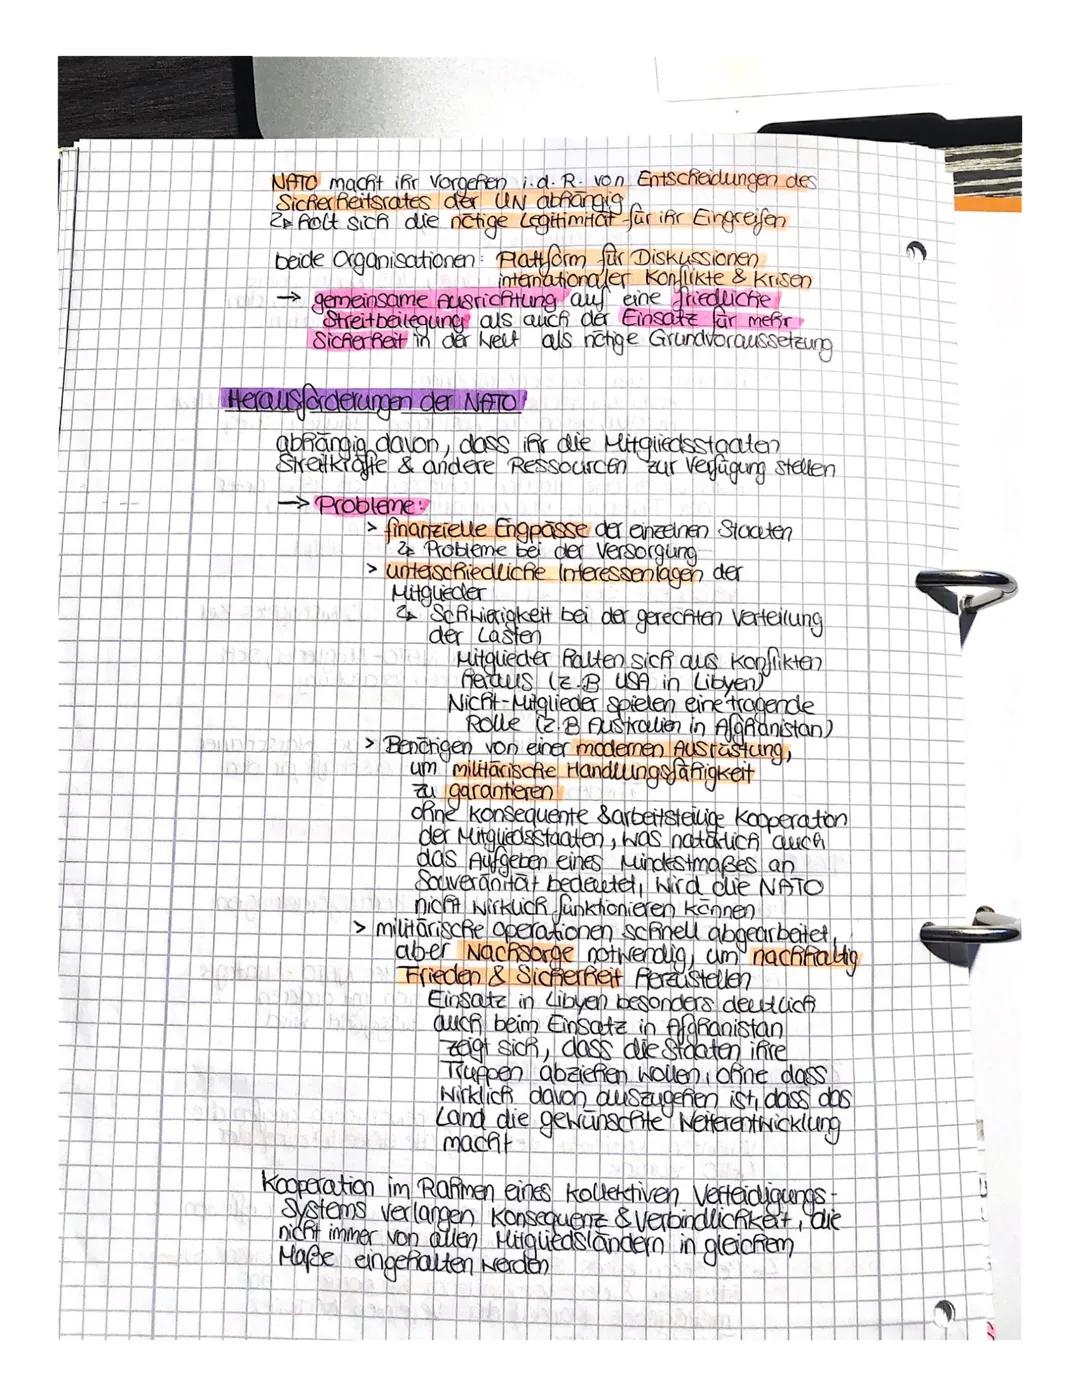 NATO macht ihr Vorgehen i.d.R. von Entscheidungen des
Sicherheitsrates der UN abhängig
↳ holt sich die nötige Legitimität für ihr Eingreifen
beide Organisationen: Plattform für Diskussionen
internationaler Konflikte & Krisen
→ gemeinsame Ausrichtung auf eine friedliche
Streitbeilegung als auch der Einsatz für mehr
Sicherheit in der Welt als nötige Grundvoraussetzung
Herausforderungen der NATO
abhängig davon, dass ihr die Mitgliedsstaaten
Streitkräfte & andere Ressourcen zur Verfügung stellen
→ Probleme:
> finanzielle Engpässe der einzelnen Staaten
↳ Probleme bei der Versorgung
> unterschiedliche Interessenlagen der
Mitglieder
↳ Schwierigkeit bei der gerechten Verteilung
der Lasten
Mitglieder halten sich aus Konflikten
heraus (z.B USA in Libyen)
Nicht-Mitglieder spielen eine tragende
Rolle (z.B Australien in Afghanistan)
> Benötigen von einer modernen Ausrüstung,
um militärische Handlungsfähigkeit
zu garantieren
ohne konsequente & arbeitsteilige Kooperation
der Mitgliedsstaaten, was natürlich auch
das Aufgeben eines Mindestmaßes an
Souveränität bedeutet, wird die NATO
nicht wirklich funktionieren können
> militärische Operationen schnell abgearbeitet,
aber Nachsorge notwendig, um nachhaltig
Frieden & Sicherheit herzustellen
Einsatz in Libyen besonders deutlich
auch beim Einsatz in Afghanistan
zeigt sich, dass die Staaten ihre
Truppen abziehen wollen, ohne dass
wirklich davon auszugehen ist, dass das
Land die gewünschte Weiterentwicklung
macht
Kooperation im Rahmen eines kollektiven Verteidigungs-
systems verlangen Konsequenz & Verbindlichkeit, die
nicht immer von allen Mitgliedsländern in gleichem
Maße eingehalten werden